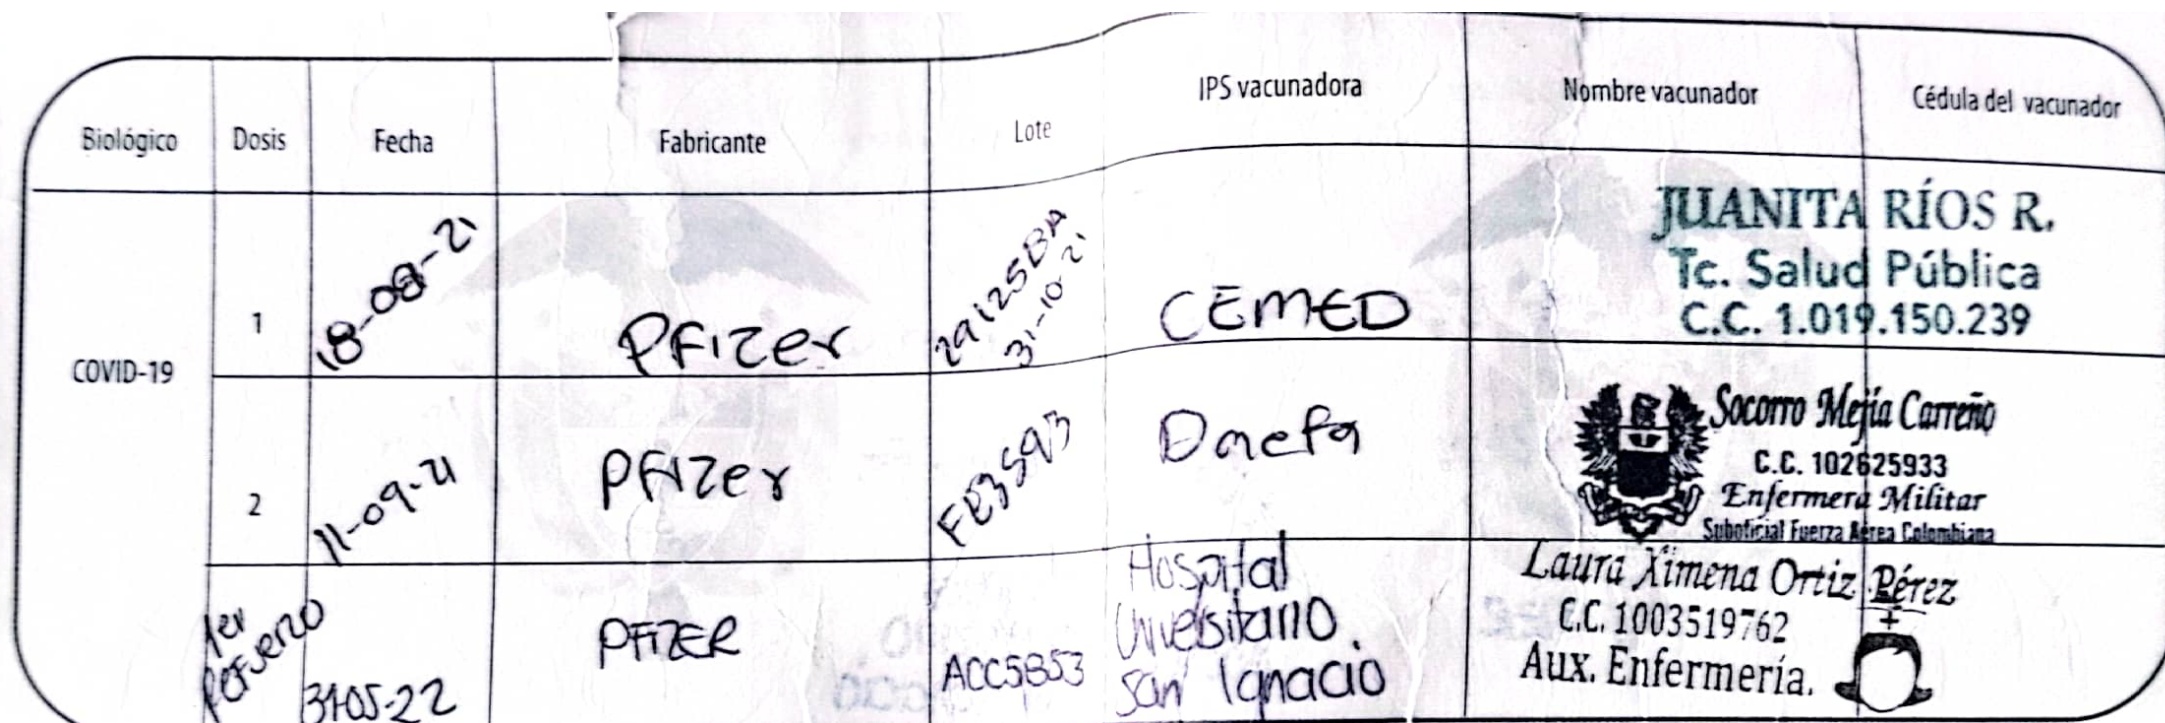 Biológico Dosis Fecha Fabricante Lote IPS vacunadora Nombre vacunador Cédula del vacunador
COVID-19
1 18-08-21 Pfizer
31-10-21
CEMED
JUANITA RÍOS R.
Tc. Salud Pública
C.C. 1.019.150.239
2 11-09-21 Pfizer
Socorro Mejía Carreño
C.C. 102625933
Enfermera Militar
Suboficial Fuerza Aérea Colombiana
1er
Refuerzo
PFIZER ACC5853
Hospital
Universitario
San Ignacio
Laura Ximena Ortiz Pérez
C.C. 1003519762
Aux. Enfermería.